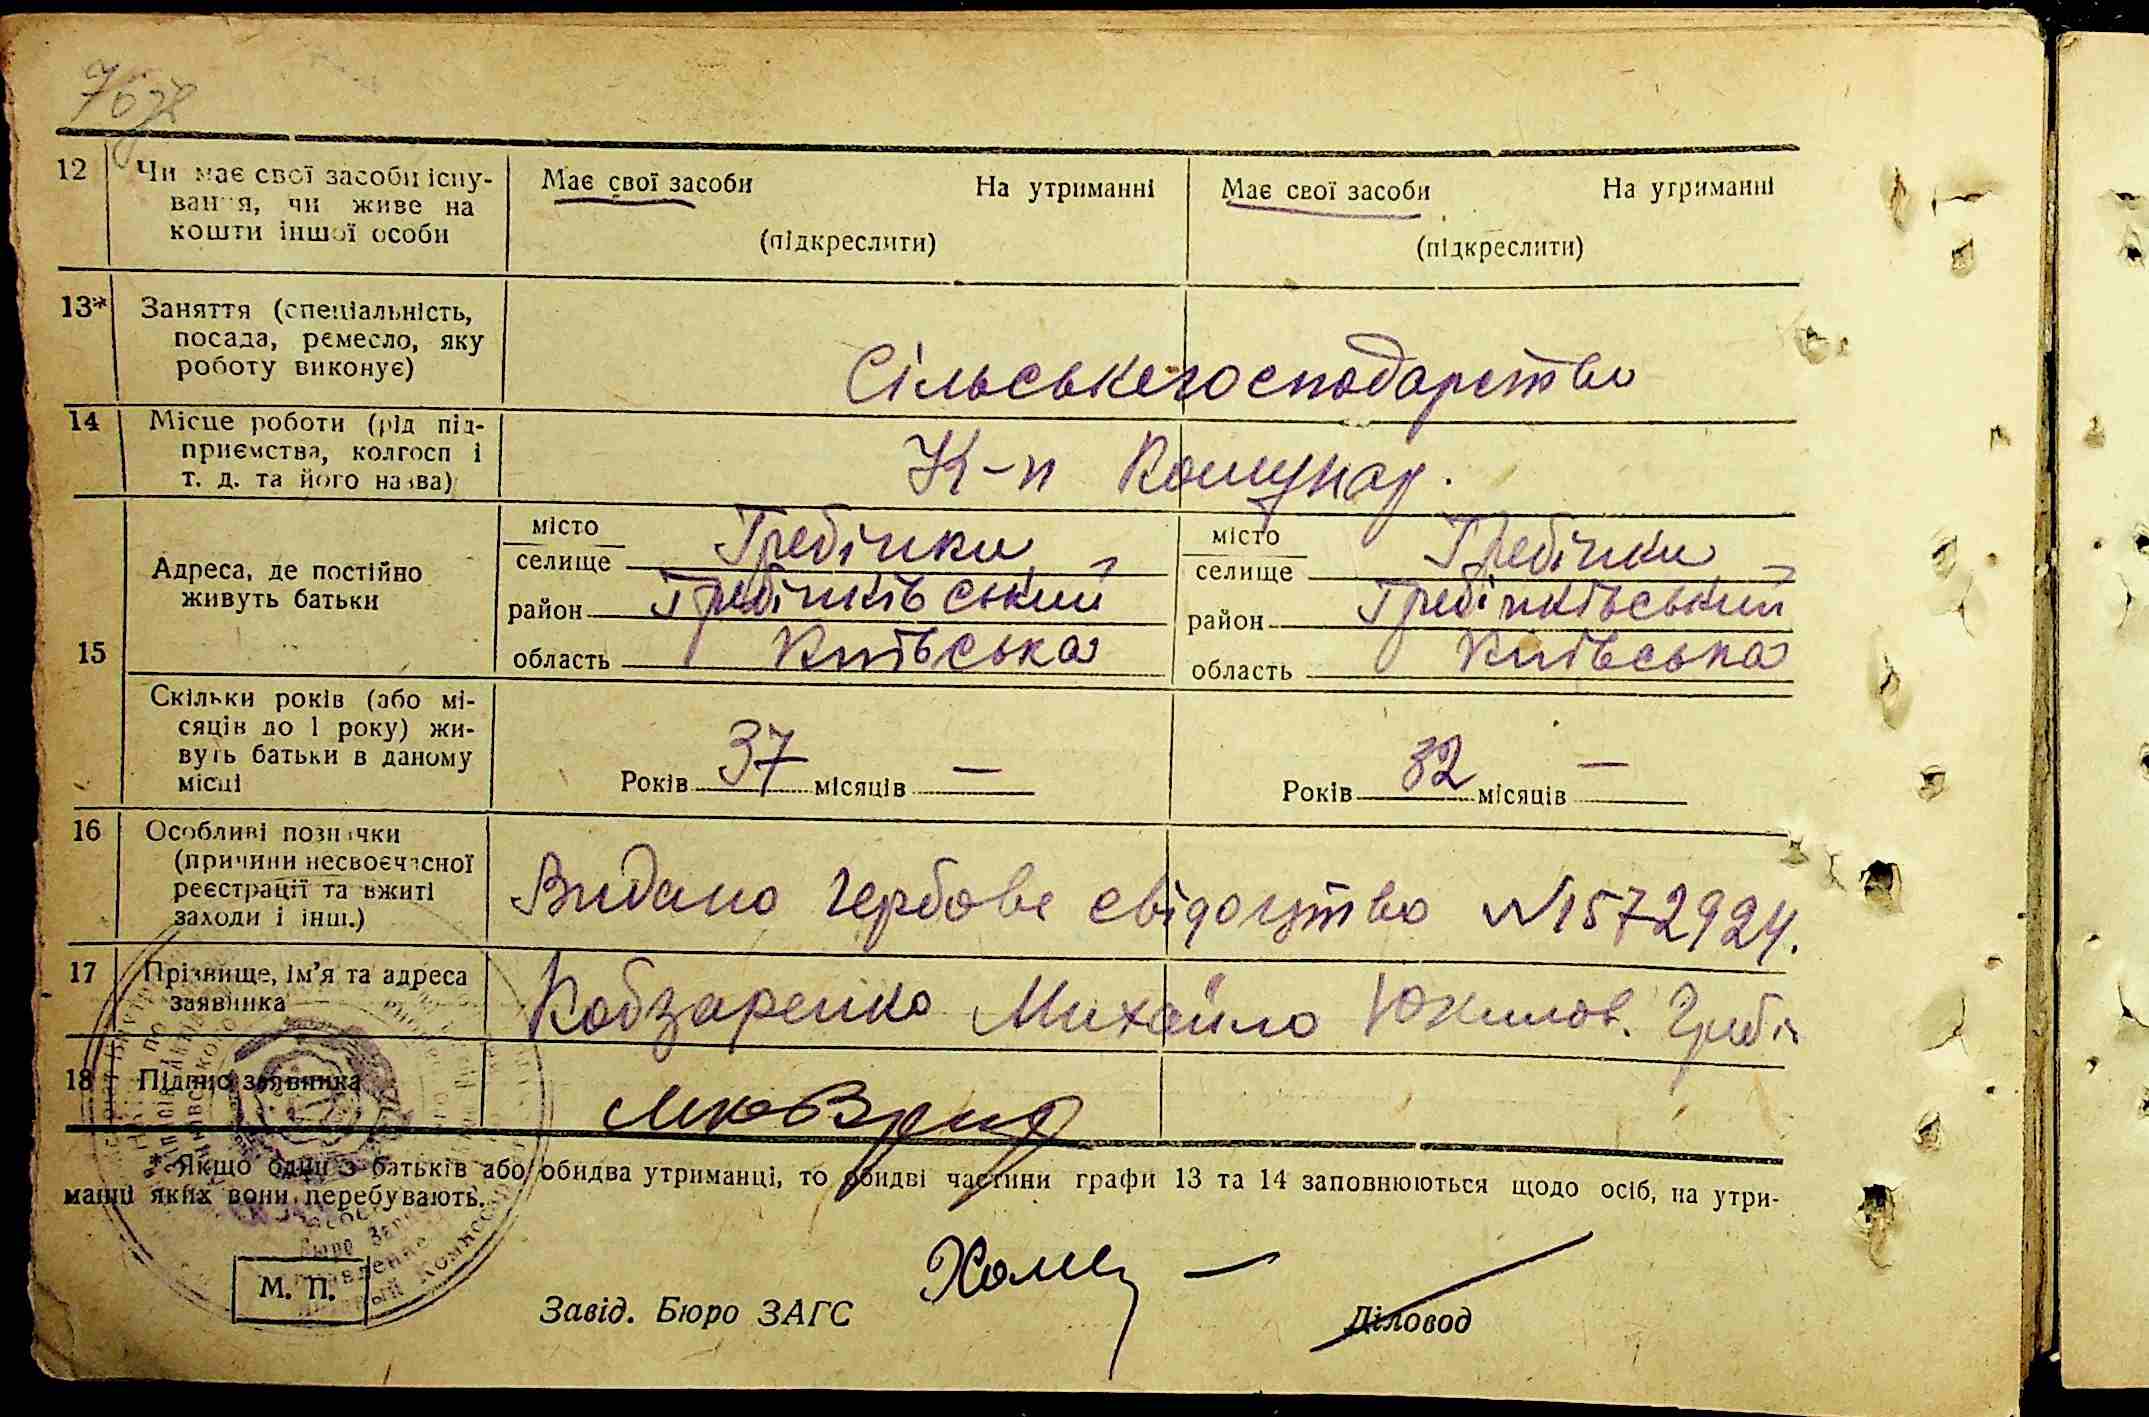 12 Чи має свої засоби існу-
вання, чи живе на
кошти іншої особи
Має свої засоби На утриманні
(підкреслити)
Має свої засоби На утриманні
(підкреслити)
13* Заняття (спеціальність,
посада, ремесло, яку
роботу виконує)
Сільськегосподарство
14 Місце роботи (рід під-
приємства, колгосп і
т. д. та його назва)
К-п Комунар.
15
Адреса, де постійно
живуть батьки
місто
селище Гребінки
район Гребінківський
область Київська
місто
селище Гребінки
район Гребінківський
область Київська
Скільки років (або мі-
сяців до 1 року) жи-
вуть батьки в даному
місці
Років 37 місяців —
Років 32 місяців —
16 Особливі позначки
(причини несвоєчасної
реєстрації та вжиті
заходи і інш.)
Видано гербове свідоцтво №1572924.
17 Прізвище, ім'я та адреса
заявника
Кобзаренко Михайло Юхимов. Гребін
18 Підпис заявника
* Якщо один з батьків або обидва утриманці, то обидві частини графи 13 та 14 заповнюються щодо осіб, на утри-
манці яких вони перебувають.
М. П.
Завід. Бюро ЗАГС
Діловод